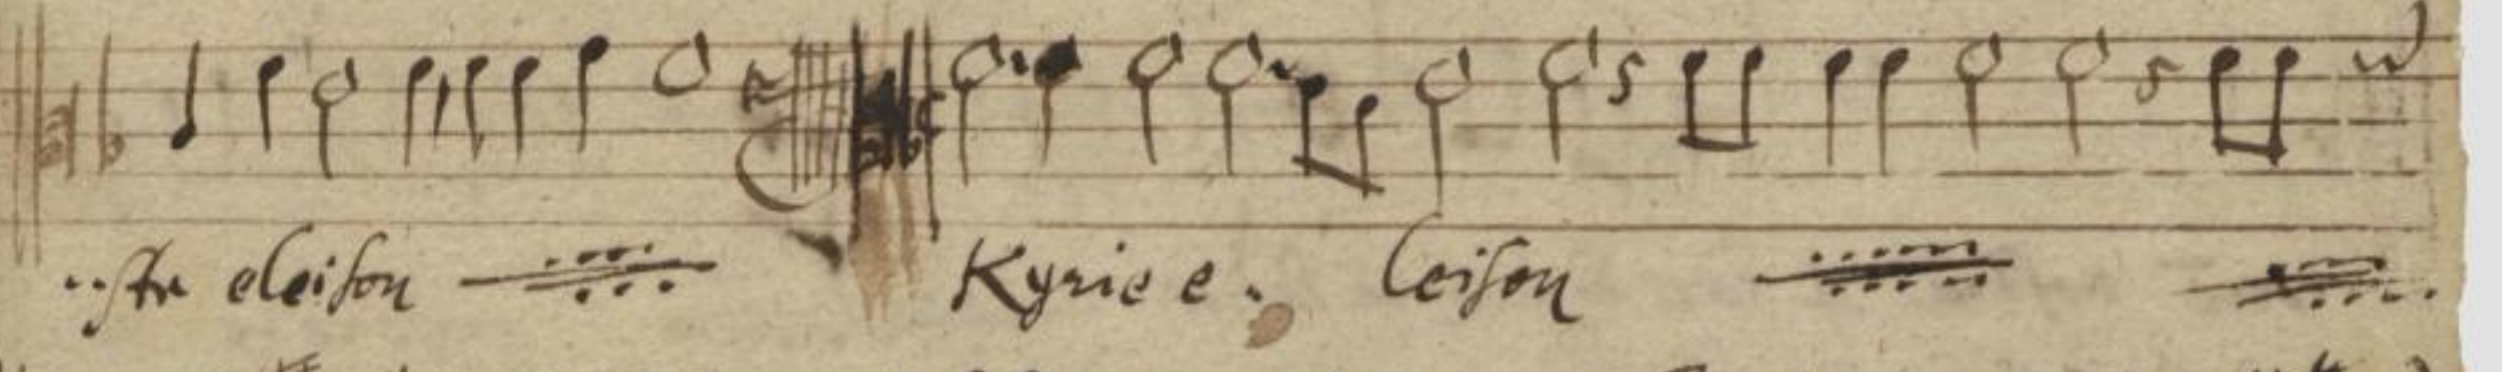 ..ste eleison Kyrie e. leison